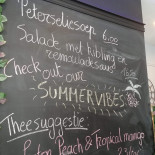 Peterseliesoep 6.00
Salade met kibbling en
remouladesaus
Check out our
SUMMERVIBES
Theesuggestie:
Peach & Tropical mango